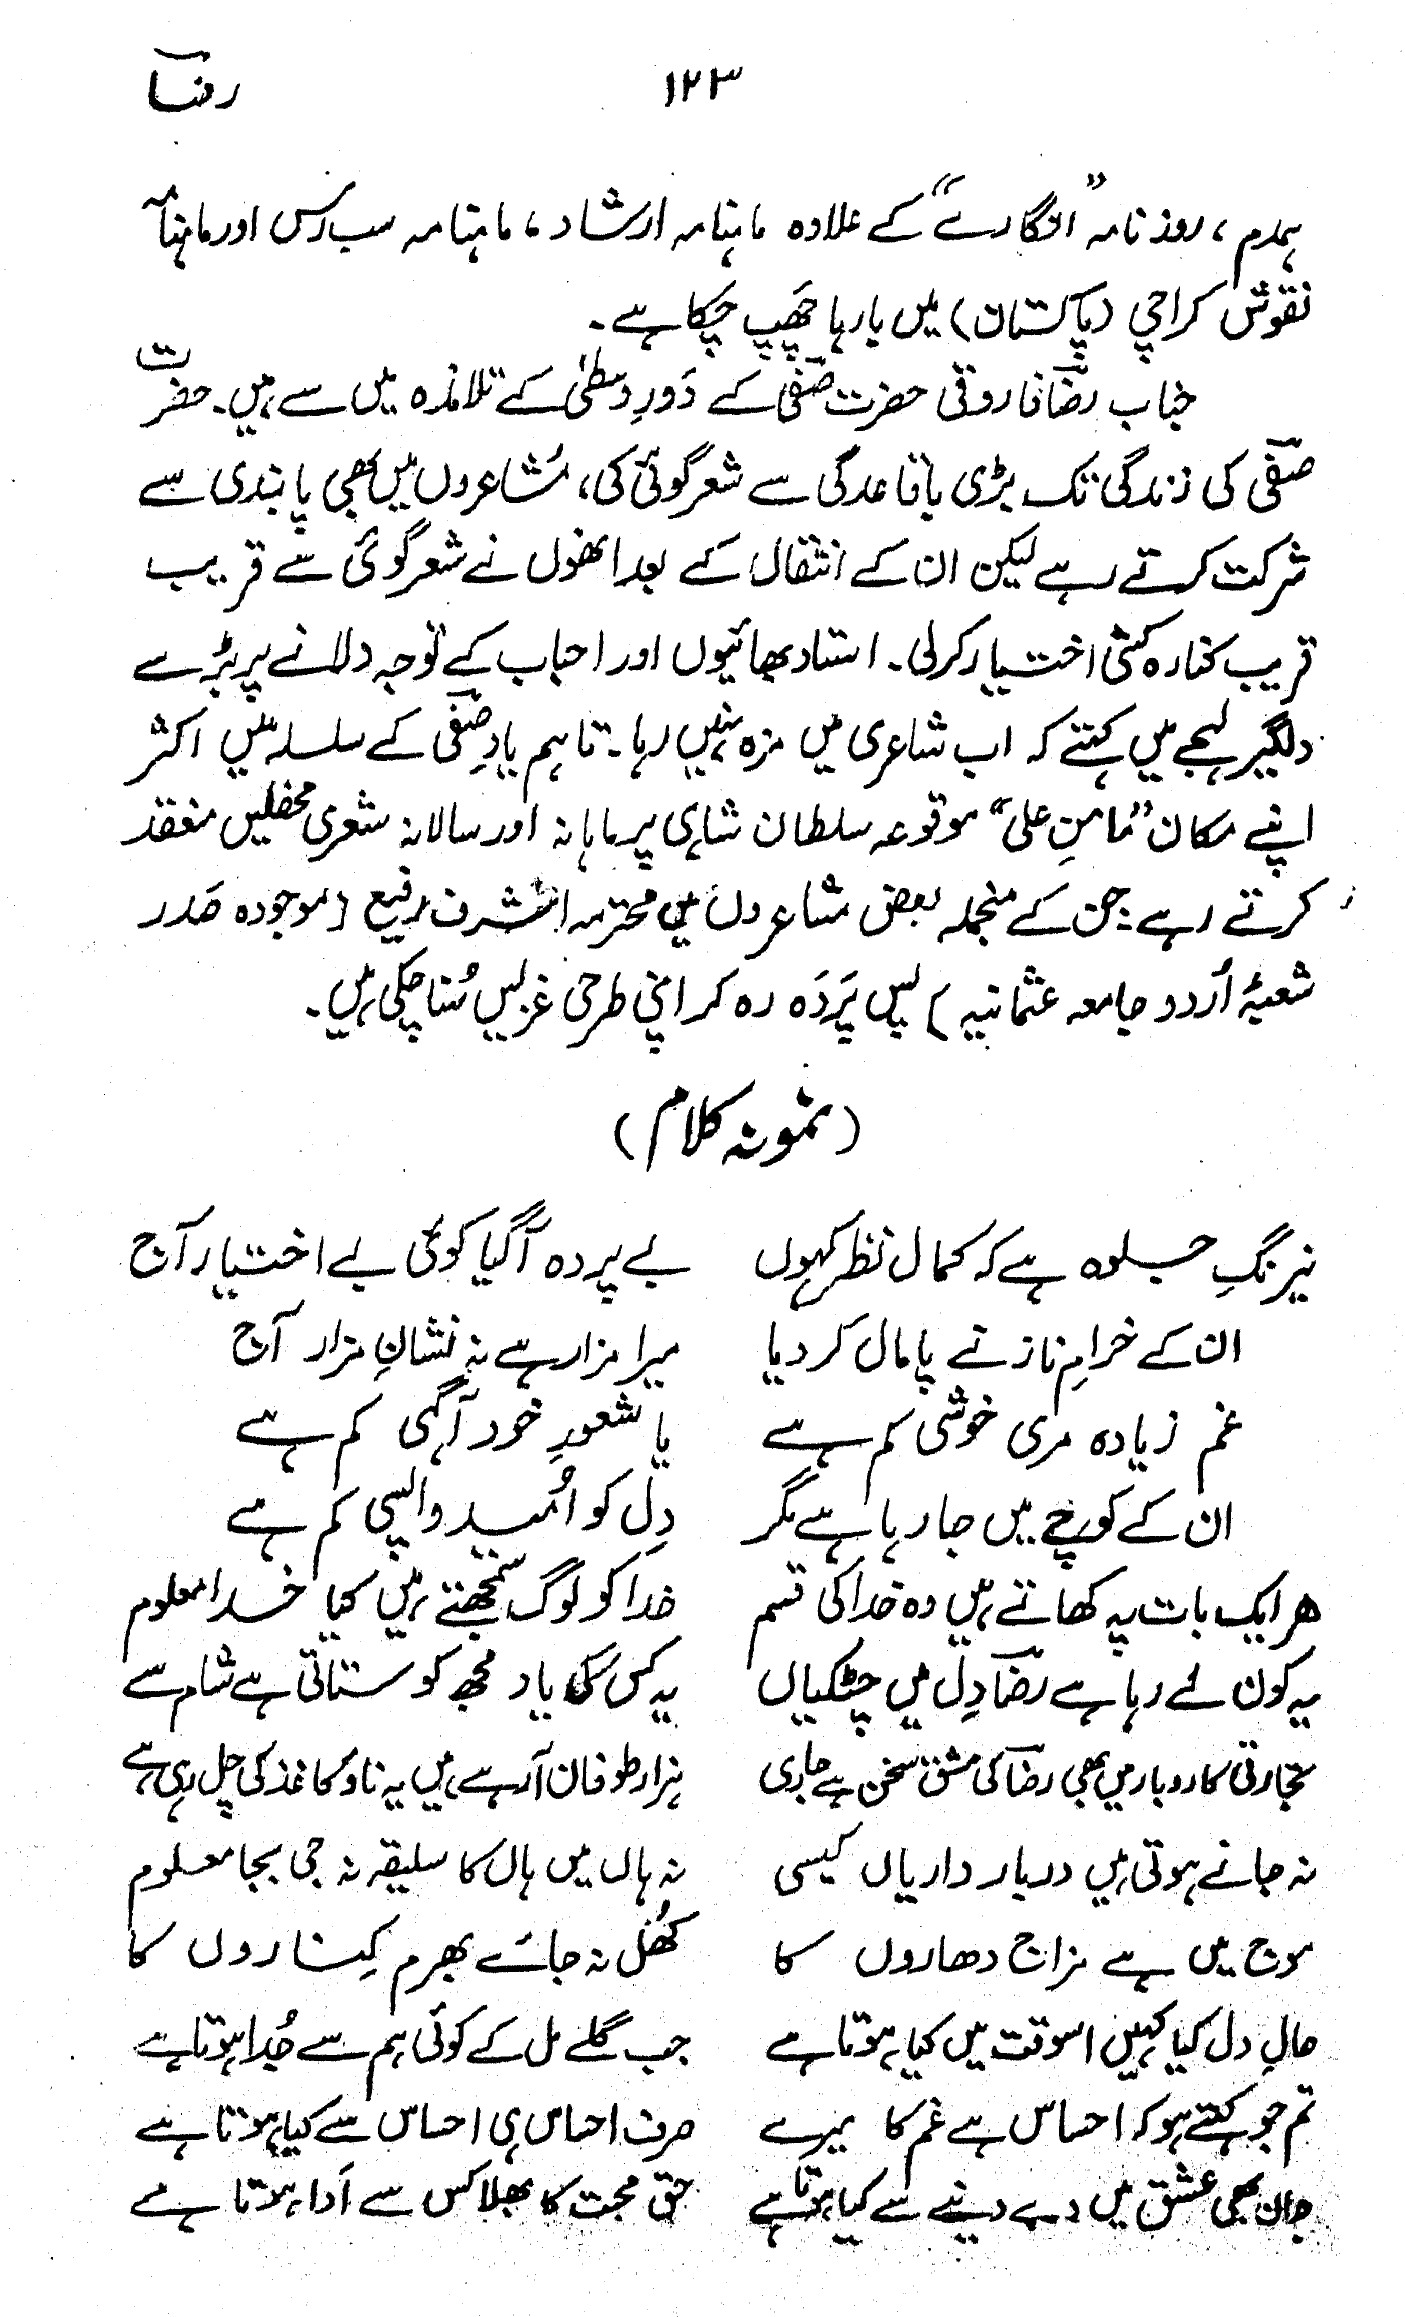 ۱۲۳ رضاؔ
ہمدم، روزنامہ "انگارے" کے علاوہ ماہنامہ ارشاد، ماہنامہ سب رس اور ماہنامہ
نقوش کراچی (پاکستان) میں بارہا چَھپ چکا ہے۔
جناب رضاؔ فاروقی حضرت صفیؔ کے دَورِ وسطیٰ کے تلامذہ میں سے ہیں۔ حضرت
صفیؔ کی زندگی تک بڑی باقاعدگی سے شعر گوئی کی، مُشاعروں میں بھی پابندی سے
شرکت کرتے رہے لیکن ان کے انتقال کے بعد انھوں نے شعر گوئی سے قریب
قریب کنارہ کشی اختیار کرلی۔ استاد بھائیوں اور احباب کے توجہ دلانے پر بڑے
دلگیر لہجے میں کہتے کہ اب شاعری میں مزہ نہیں رہا۔ تاہم یادِ صفیؔ کے سلسلہ میں اکثر
اپنے مکان "مُامنِ علی" موقوعہ سلطان شاہی پر ماہانہ اور سالانہ شعری محفلیں منعقد
کرتے رہے جن کے منجملہ بعض مشاعروں میں محترمہ اشرف رفیع (موجودہ صَدر
شعبۂ اُردو جامعہ عثمانیہ) پسِ پَردَہ رہ کر اپنی طرحی غزلیں سُنا چکی ہیں۔
(نمونہ کلام)
نیرنگِ جلوہ ہے کہ کمال نظر کہوں بے پردہ آگیا کوئی بے اختیار آج
ان کے خرامِ ناز نے پامال کر دیا میرا مزار ہے نہ نشانِ مزار آج
غم زیادہ مری خوشی کم ہے یا شعورِ خود آگہی کم ہے
ان کے کوچے میں جا رہا ہے مگر دِل کو اُمید واپسی کم ہے
ہر ایک بات پہ کھاتے ہیں وہ خدا کی قسم خدا کو لوگ سمجھتے ہیں کیا خدا معلوم
یہ کون لے رہا ہے رضاؔ دِل میں چٹکیاں یہ کس کی یاد مجھ کو ستاتی ہے شام سے
تجارتی کاروبار میں بھی رضاؔ کی مشق سخن ہے جاری ہزار طوفان آرہے ہیں یہ ناو کاغذ کی چل رہی ہے
نہ جانے ہوتی ہیں دربار داریاں کیسی نہ ہاں میں ہاں کا سلیقہ نہ جی بجا معلوم
موج میں ہے مزاج دھاروں کا کھُل نہ جائے بھرم کِناروں کا
حالِ دل کیا کہیں اسوقت میں کیا ہوتا ہے جب گلے مل کے کوئی ہم سے جُدا ہوتا ہے
تم جو کہتے ہو کہ احساس ہے غم کا میرے صرف احساس ہی احساس سے کیا ہوتا ہے
جان بھی عشق میں دے دینے سے کیا ہوتا ہے حق محبت کا بھلا کس سے اَدا ہوتا ہے